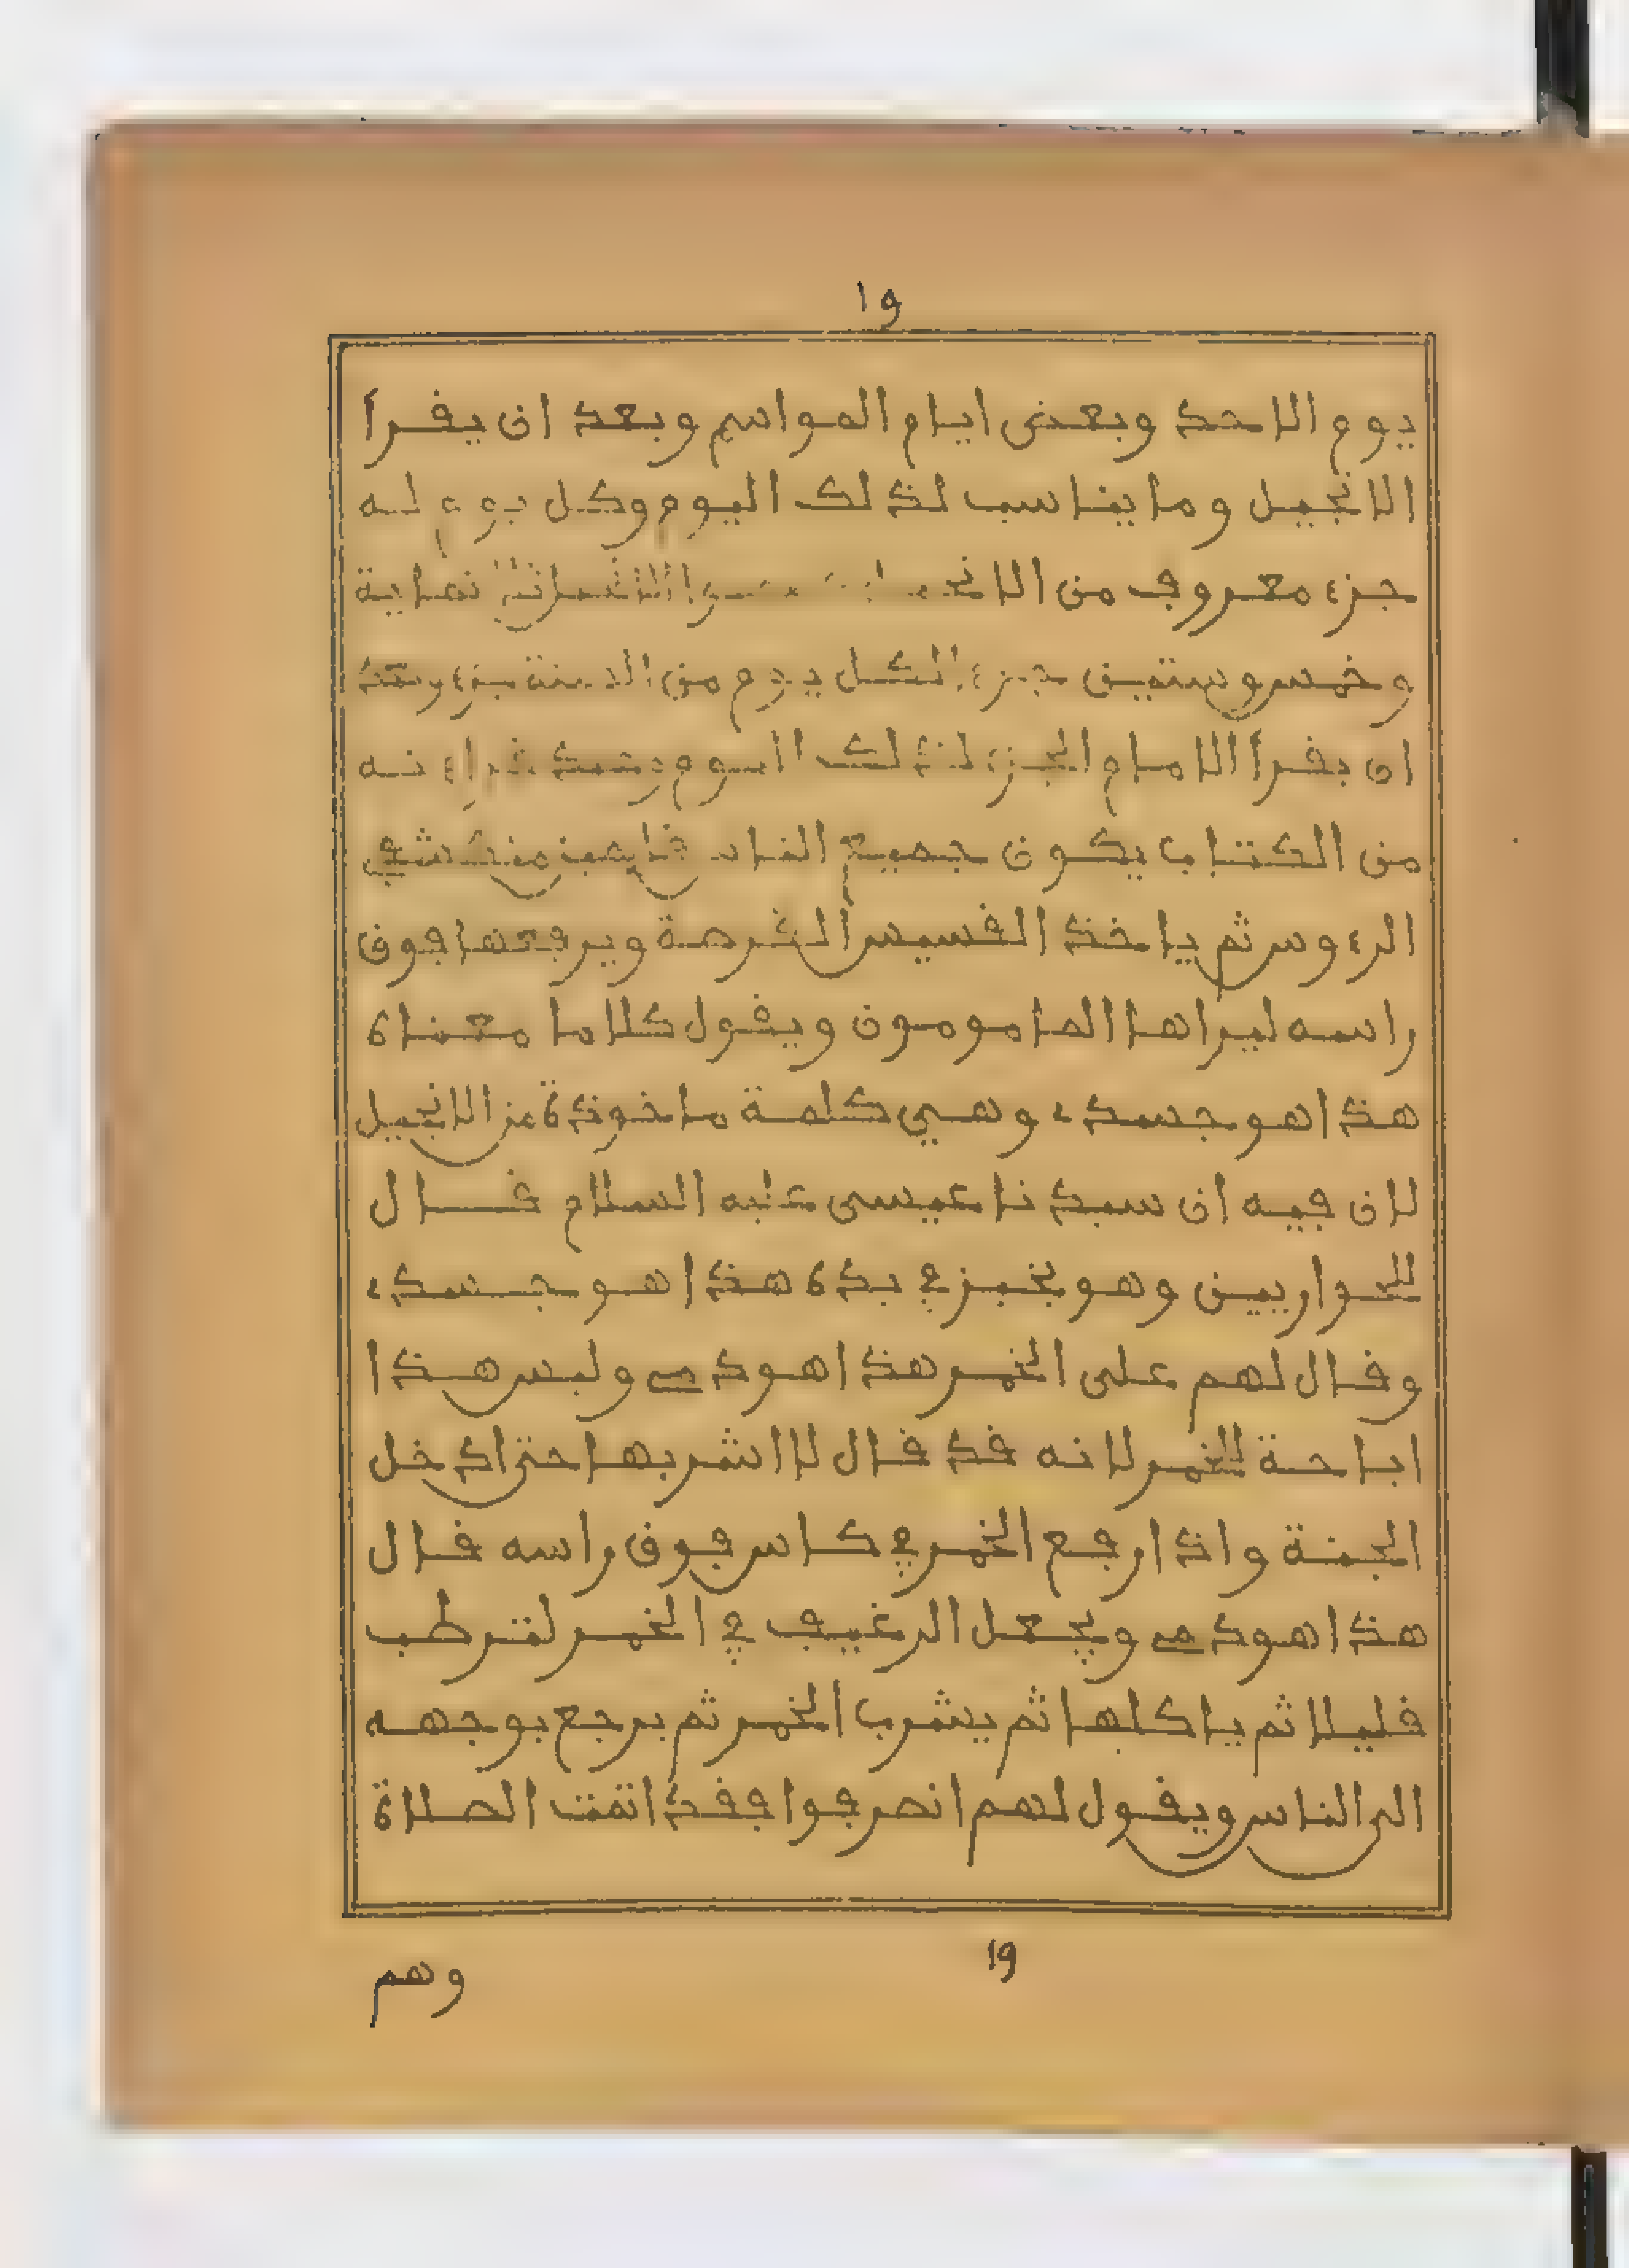 19
يوم الاحد وبعض ايام المواسم وبعد ان يقرأ
الانجيل وما يناسب لذلك اليوم وكل يوم له
جزء معروف من
وخمس وستين جزءا لكل يوم من السنة جزء
ان يقرأ الامام الجزء لذلك اليوم
من الكتاب يكون جميع الناس
الرءوس ثم ياخذ القسيس القرصة ويرفعها فوق
راسه ليراها المامومون ويقول كلاما معناه
هذا هو جسدي وهي كلمة ماخوذة من الانجيل
لان فيه ان سيدنا عيسى عليه السلام قال
للحواريين وهو بخبز في يده هذا هو جسدي
وقال لهم على الخمر هذا هو دمي وليس هذا
اباحة للخمر لانه قد قال لا اشربها حتى ادخل
الجنة واذا رفع الخمر في كاس فوق راسه قال
هذا هو دمي ويجعل الرغيف في الخمر لترطب
قليلا ثم ياكلها ثم يشرب الخمر ثم يرجع بوجهه
الى الناس ويقول لهم انصرفوا فقد اتمت الصلاة
19
وهم